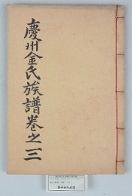 慶州金氏族譜卷之三